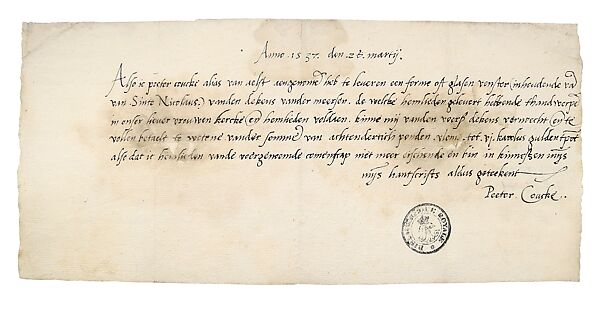 Anno 1537. den 28. martij.
Alsoe ic peeter coucke alias van aelst aengenomē heb te leveren een forme oft glasen venster (inhoudende
van Sinte Nicolaus,) vanden dekens vander meersen. de welcke hemlieden gelevert hebbende thandworpē
in onser liever vrouwen kercke (en hemlieden voldaen. kinne mij vanden voers dekens vernoecht (en te
vollen betaelt te wetene vander somme van achiendertich ponden vlems. tot .vj. karolus gulden tpōt
alsoe dat ic hemlieden vande voergenoemde comenscap niet meer eijschende en bin in kinnessen mijs
mijs hantscrifts aldus geteekent
Peeter. Coucke.